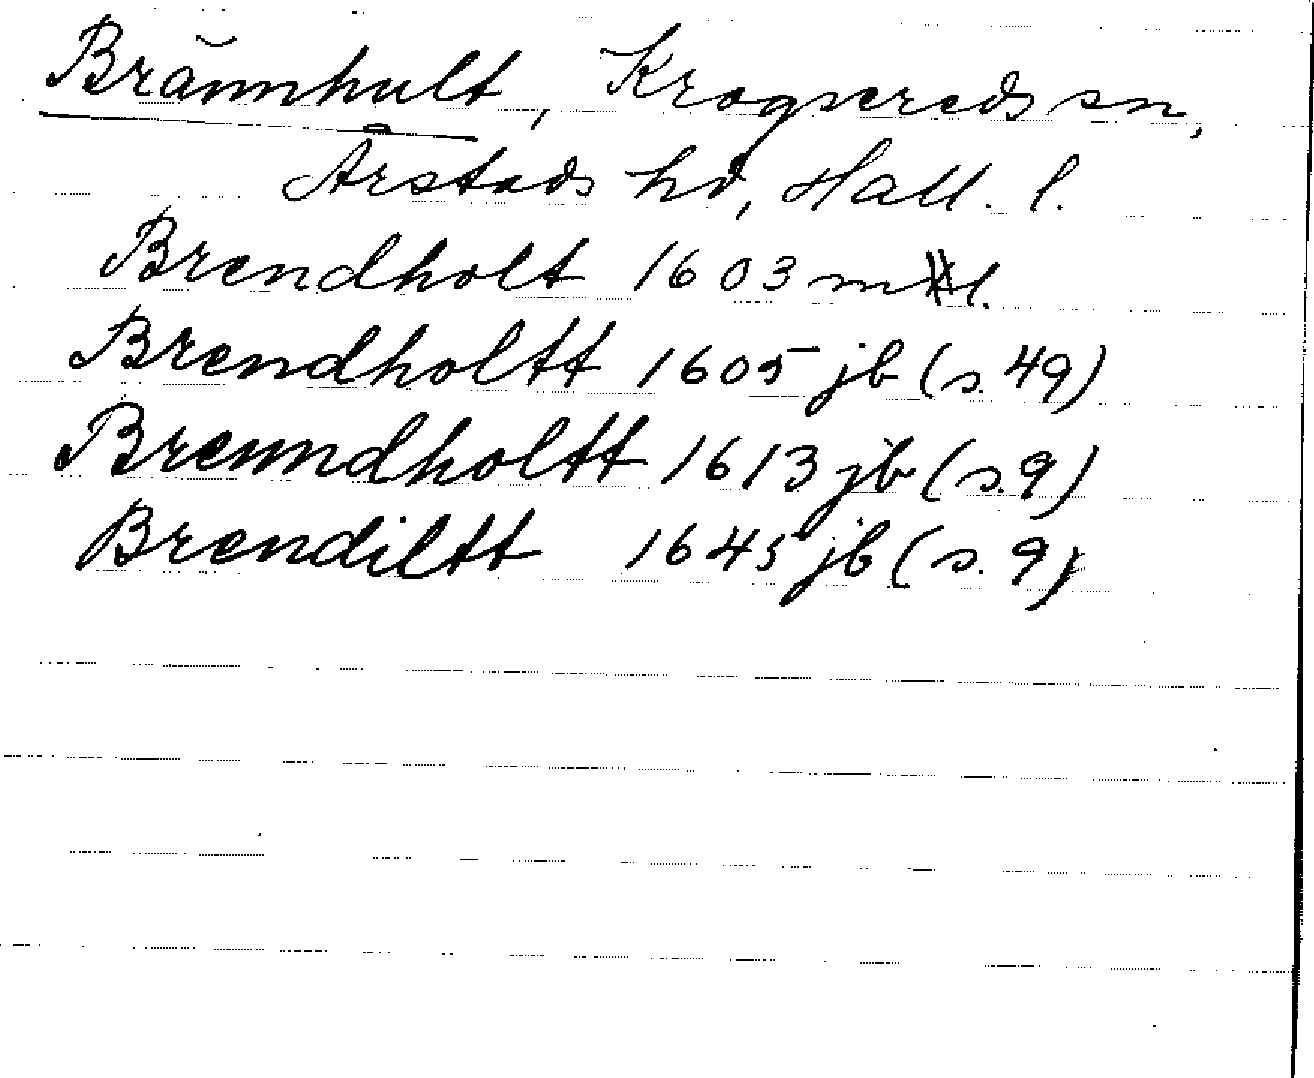 Brännhult, Krogsereds sn,
Årstads hd, Hall. l.
Brendholt 1603 ml.
Brendholtt 1605 jb (s. 49)
Brenndholtt 1613 jb (s. 9)
Brendiltt 1645 jb (s. 9)